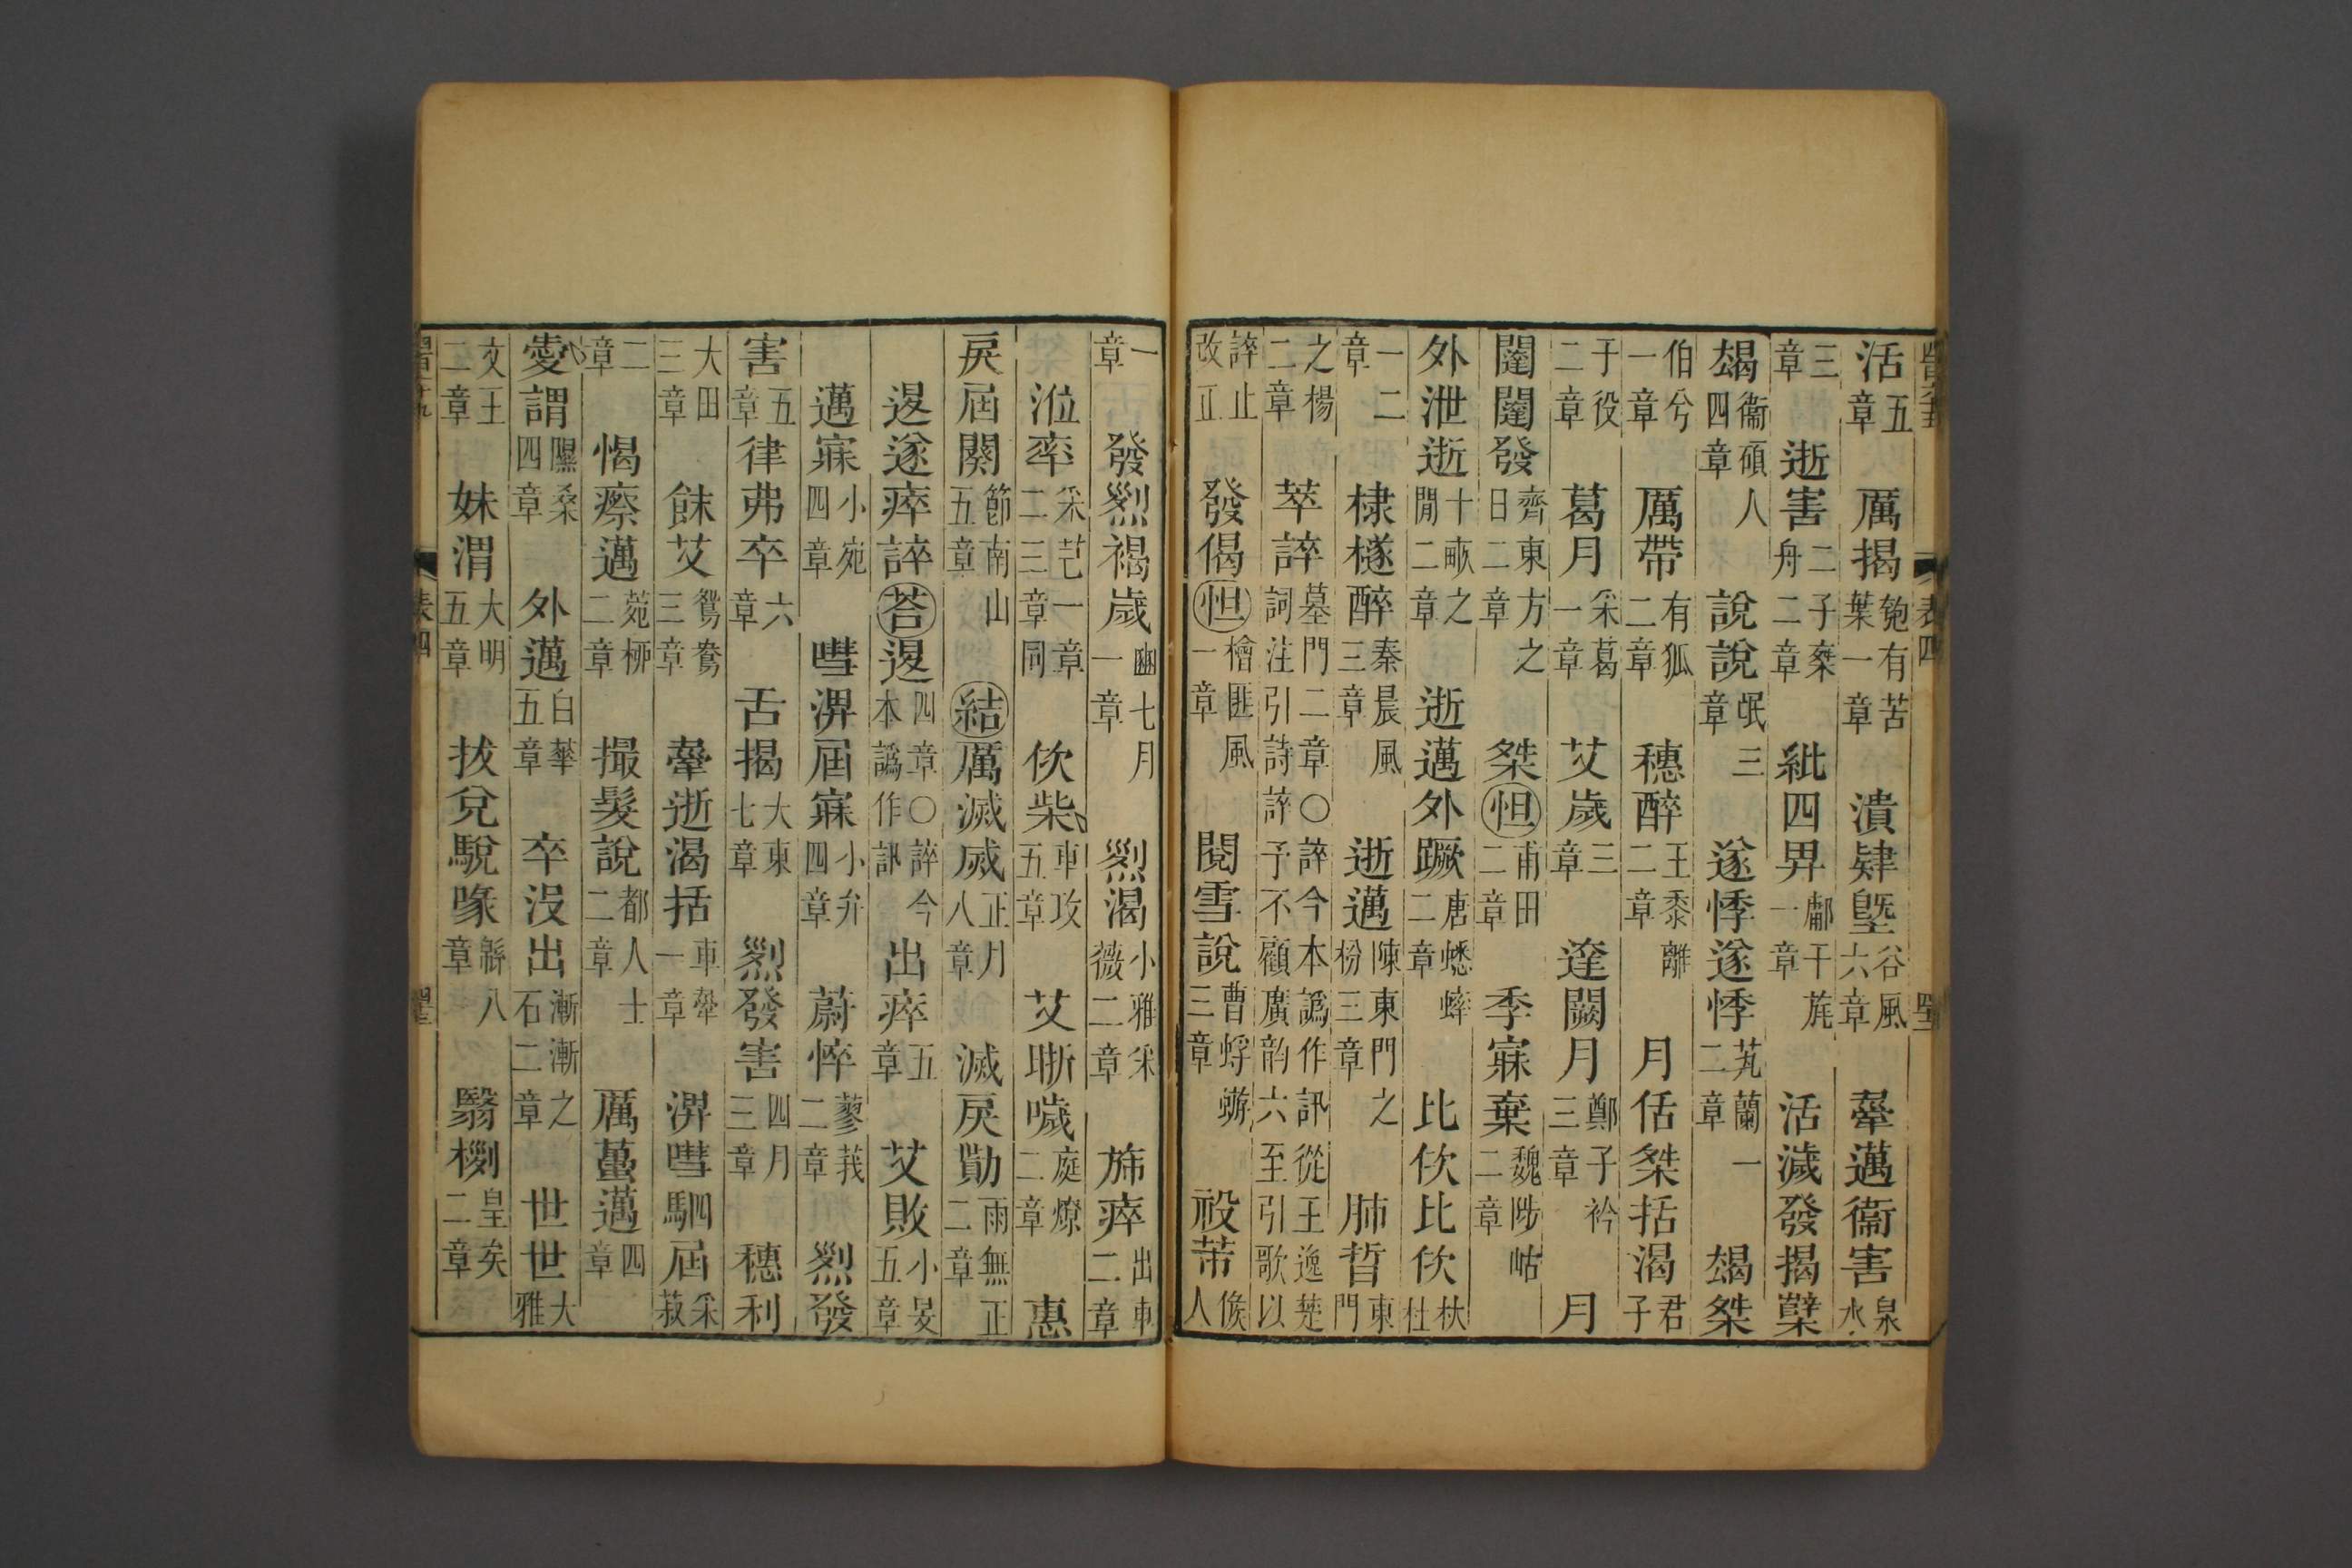 活五章　厲揭匏有苦葉一章　潰肄墍谷風六章　舝邁衞害泉水
三章　逝害二子乗舟二章　紕四畀鄘干旄一章　活濊發揭孽
朅衞碩人四章　說說氓三章　遂悸遂悸芄蘭一二章　朅桀
伯兮一章　厲帶有狐二章　穗醉王黍離二章　月佸桀括渴君子
于役二章　葛月采葛一章　艾歲三章　達闕月鄭子衿三章　月
闥闥發齊東方之日二章　桀怛甫田二章　季寐棄魏陟岵二章
外泄逝十畝之閒二章　逝邁外蹶唐蟋蟀二章　比佽比佽杕杜
一二章　棣檖醉秦晨風三章　逝邁陳東門之枌三章　肺晢東門
之楊二章　萃誶墓門二章○誶今本譌作訊從王逸楚詞注引詩誶予不顧廣韵六至引歌以
誶止改正　發偈怛檜匪風一章　閱雪說曹蜉蝣三章　祋芾候人
一章　發烈褐歲豳七月一章　烈渴小雅采薇二章　旆瘁出車二章
涖率采芑一章二三章同　佽柴車攻五章　艾晣噦庭燎二章　惠
戾屆闋節南山五章　結厲滅烕正月八章　滅戾勩雨無正二章
退遂瘁誶荅退四章○誶今本譌作訊　出瘁五章　艾敗小旻五章
邁寐小宛四章　嘒淠屆寐小弁四章　蔚悴蓼莪二章　烈發
害五章　律弗卒六章　舌揭大東七章　烈發害四月三章　穗利
大田三章　秣艾鴛鴦三章　舝逝渴括車舝一章　淠嘒駟屆采菽
二章　愒瘵邁菀柳二章　撮髮說都人士二章　厲蠆邁四章
愛謂隰桑四章　外邁白華五章　卒沒出漸漸之石二章　世世大雅
文王二章　妹渭大明五章　拔兌駾喙緜八章　翳栵皇矣二章